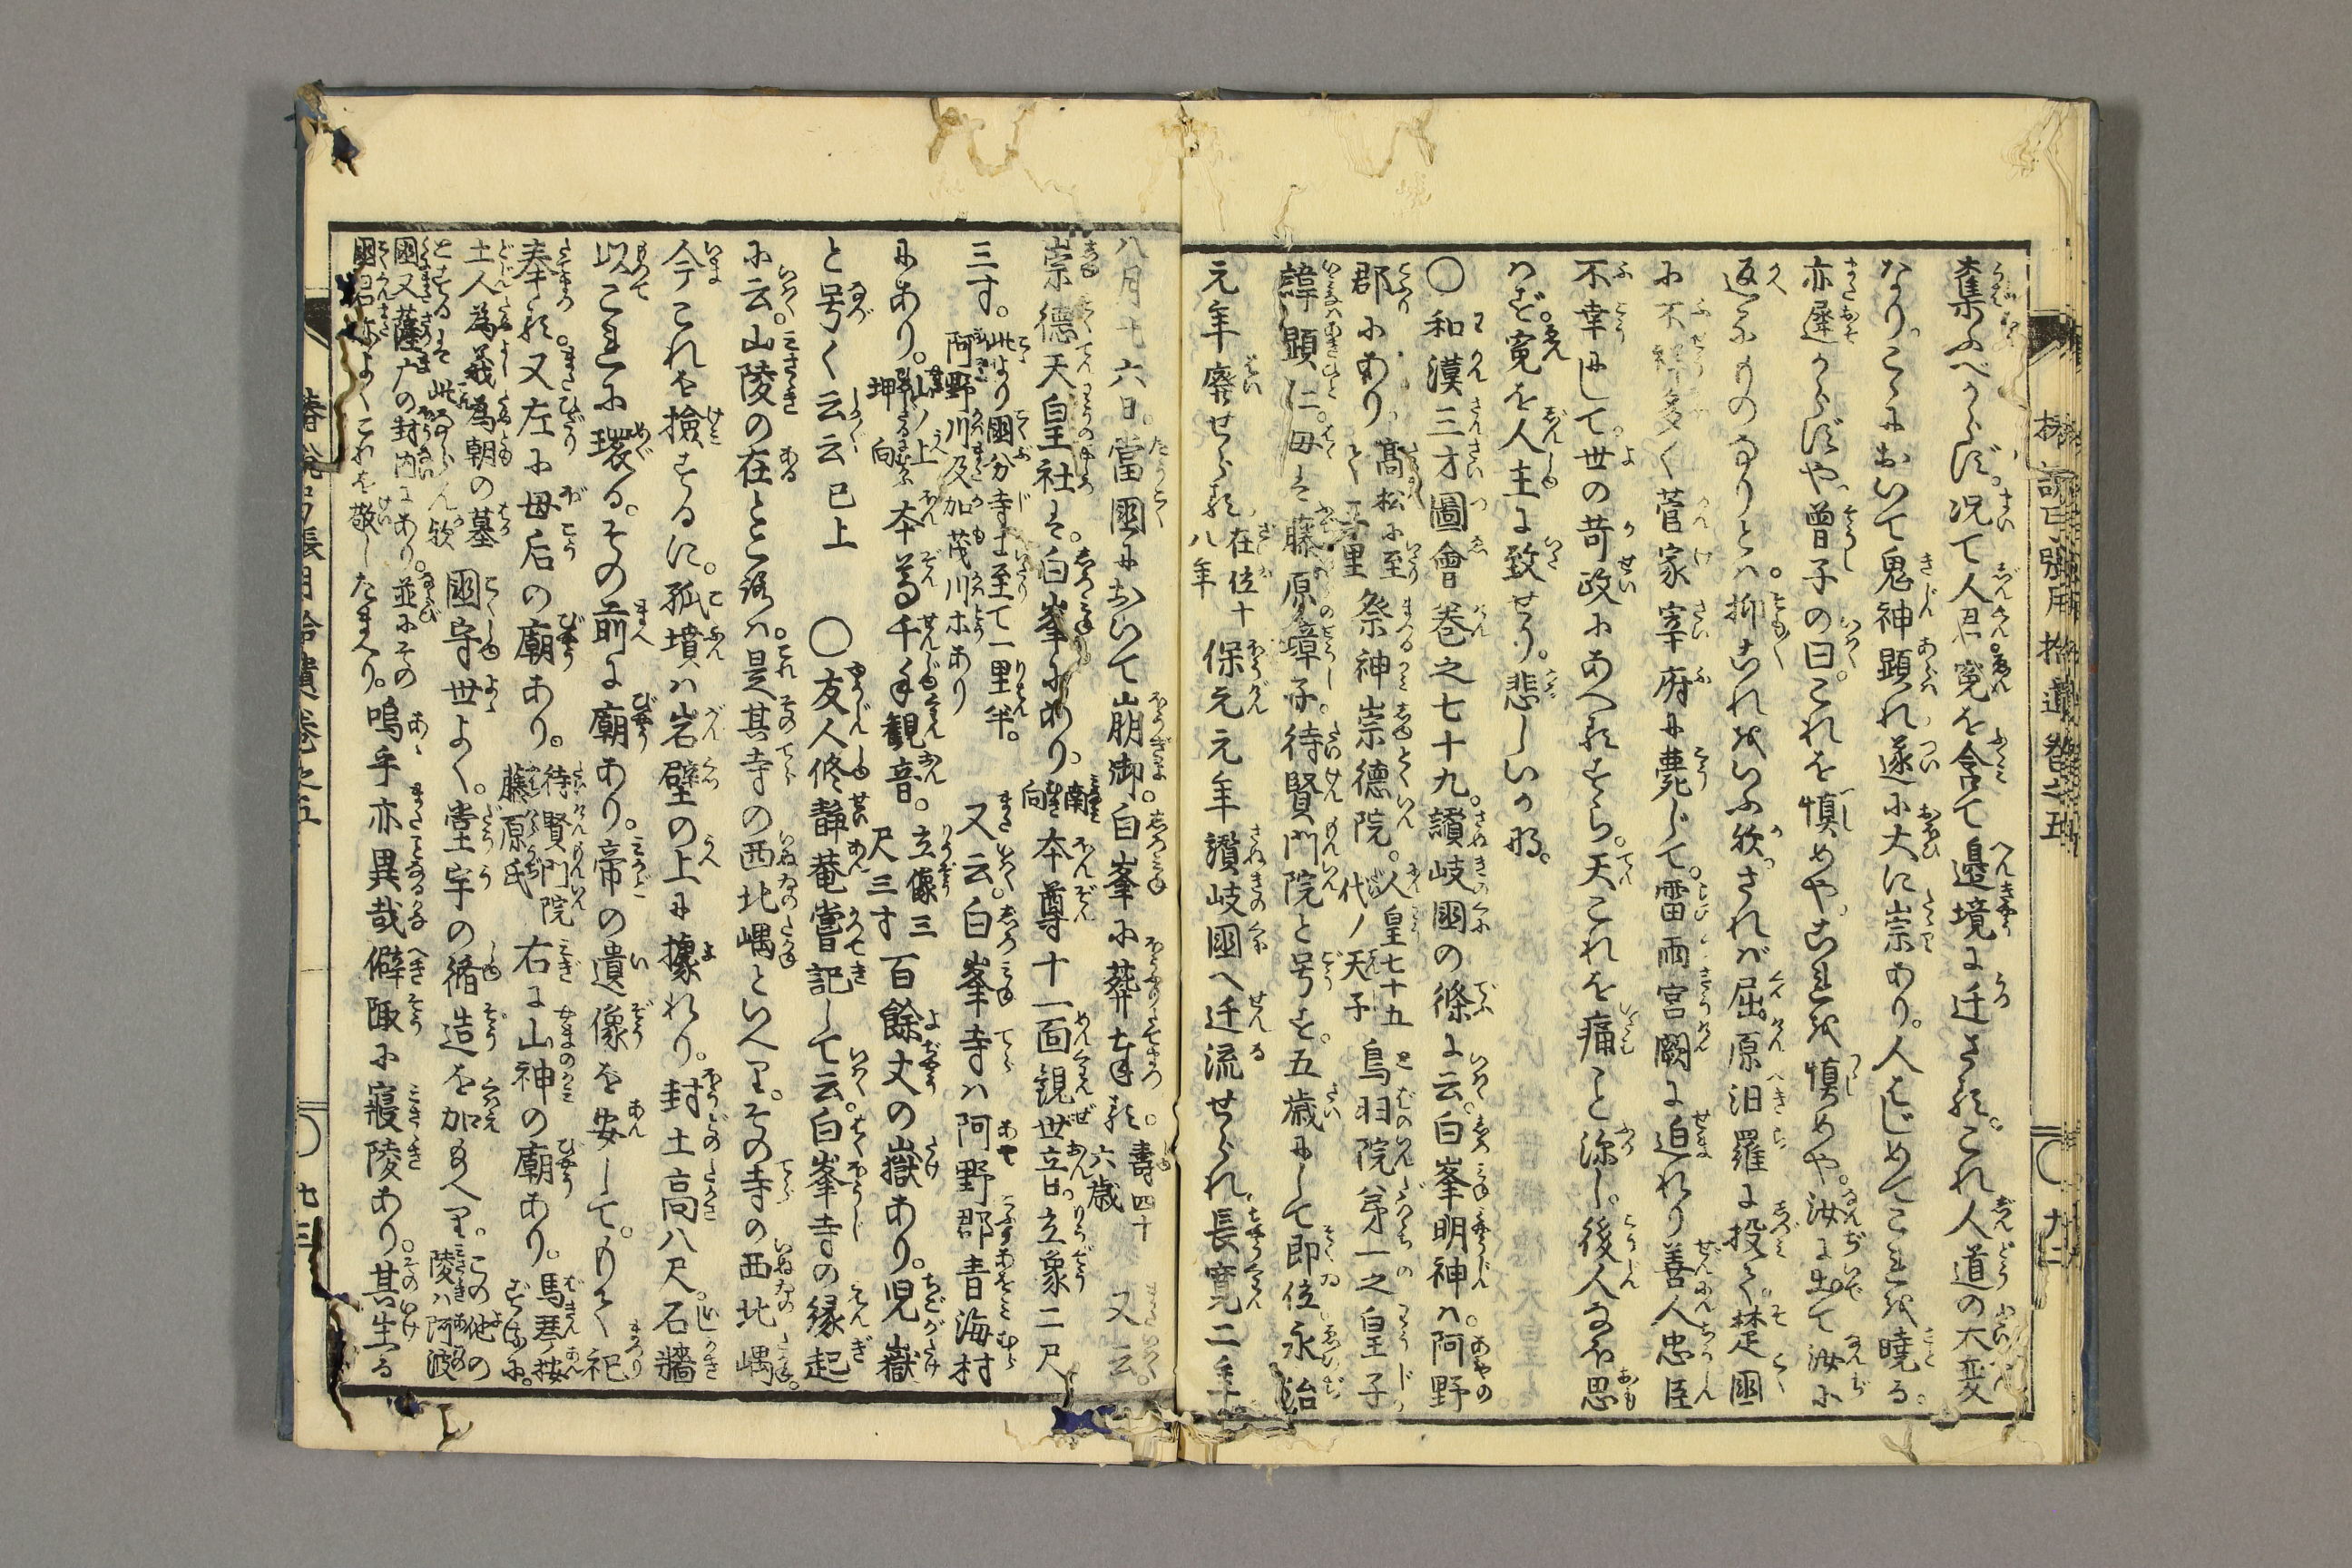 奪ふべからず。况て人君寃を含て邉境に迁さる。これ人道の大変
なり。こゝにおいて鬼神顕れ遂に大に崇あり。人はじめてこれを曉る。
亦遅からずや。曾子の曰。これを慎めや。これを慎めや。汝に出て汝に
返るものなりとは。抑これをいふ欤。されば屈原汨羅に投て。楚國
に不祥多く菅家宰府に薨じて。雷雨宮闕に迫れり善人忠臣
不幸にして。世の苛政にあへるすら。天これを痛こと深し。後人なほ思
はず。寃を人主に致せり。悲しいかな。
〇和漢三才圖會巻之七十九。讃岐國の條に云。白峯明神は。阿野
郡にあり。髙松に至て五里 祭神崇德院。人皇七十五代ノ天子 鳥羽院第一之皇子
諱顕仁。母は藤原璋子。待賢門院と号す。五歳にして即位。永治
元年廃せらる。在位十八年 保元元年讃岐國へ迁流せられ。長寛二年
八月廿六日。當國において崩御。白峯に葬奉る。壽四十六歳 又云。
崇德天皇社は。白峯にあり。南向 本尊十一面観世音。立象二尺
三寸。此より國分寺に至て一里半。阿野川及加茂川ホあり 又云。白峯寺は阿野郡青海村
にあり。山ノ上坤向 本尊千手観音。立像三尺三寸 百餘丈の嶽あり。児嶽
と号く云云已上 〇友人佟静菴嘗記して云。白峯寺の縁起
に云。山陵の在ところは。是其寺の西北嵎といへり。その寺の西北嵎。
今これを撿するに。孤墳は岩壁の上に據れり。封土高八尺。石牆
以これに環る。その前に廟あり。帝の遺像を安して。もて祀
奉る。又左に母后の廟あり。待賢門院藤原氏 右に山神の廟あり。馬琴按ずるに。
土人為義為朝の墓とするは此ならん欤 國守世よく。堂宇の脩造を加へり。この他の陵は阿波
國又薩广の封内にあり。並にその國君亦よくこれを敬したまへり。嗚乎亦異哉僻陬に寢陵あり。其生る
椿說弓張月拾遺巻之五